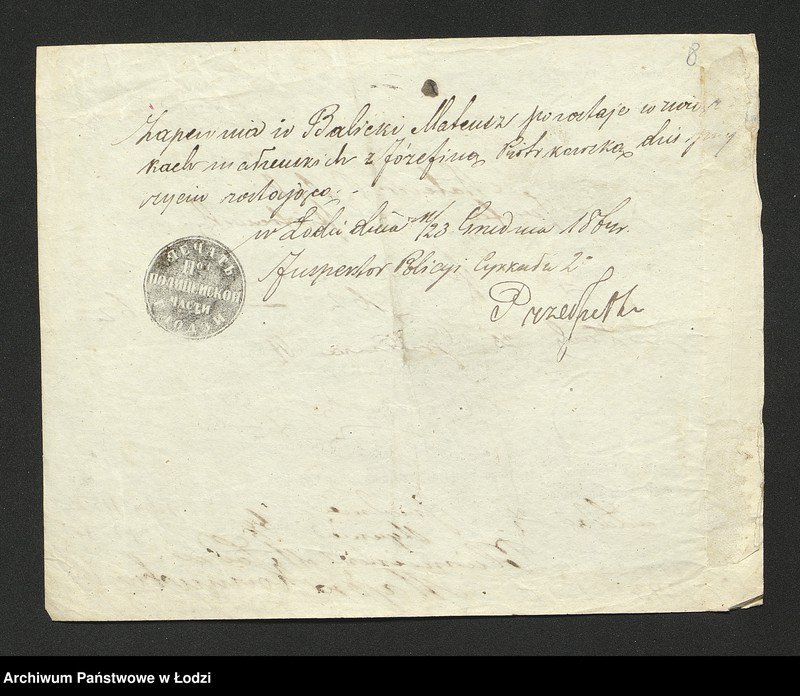 8
Zapewnia iż Balicki Mateusz pozostaje w zwiąs
kach małżeńskich z Józefiną Piotrkowską dziś przy
życiu zostającą.-
w Łodzi dnia 11/23 Grudnia 186 r.
Inspektor Policyi Cyrkułu 2º
ПЕЧАТЬ
IIой
ПОЛИЦЕЙСКОЙ
ЧАСТИ
Г. ЛОДЗИ
Archiwum Państwowe w Łodzi